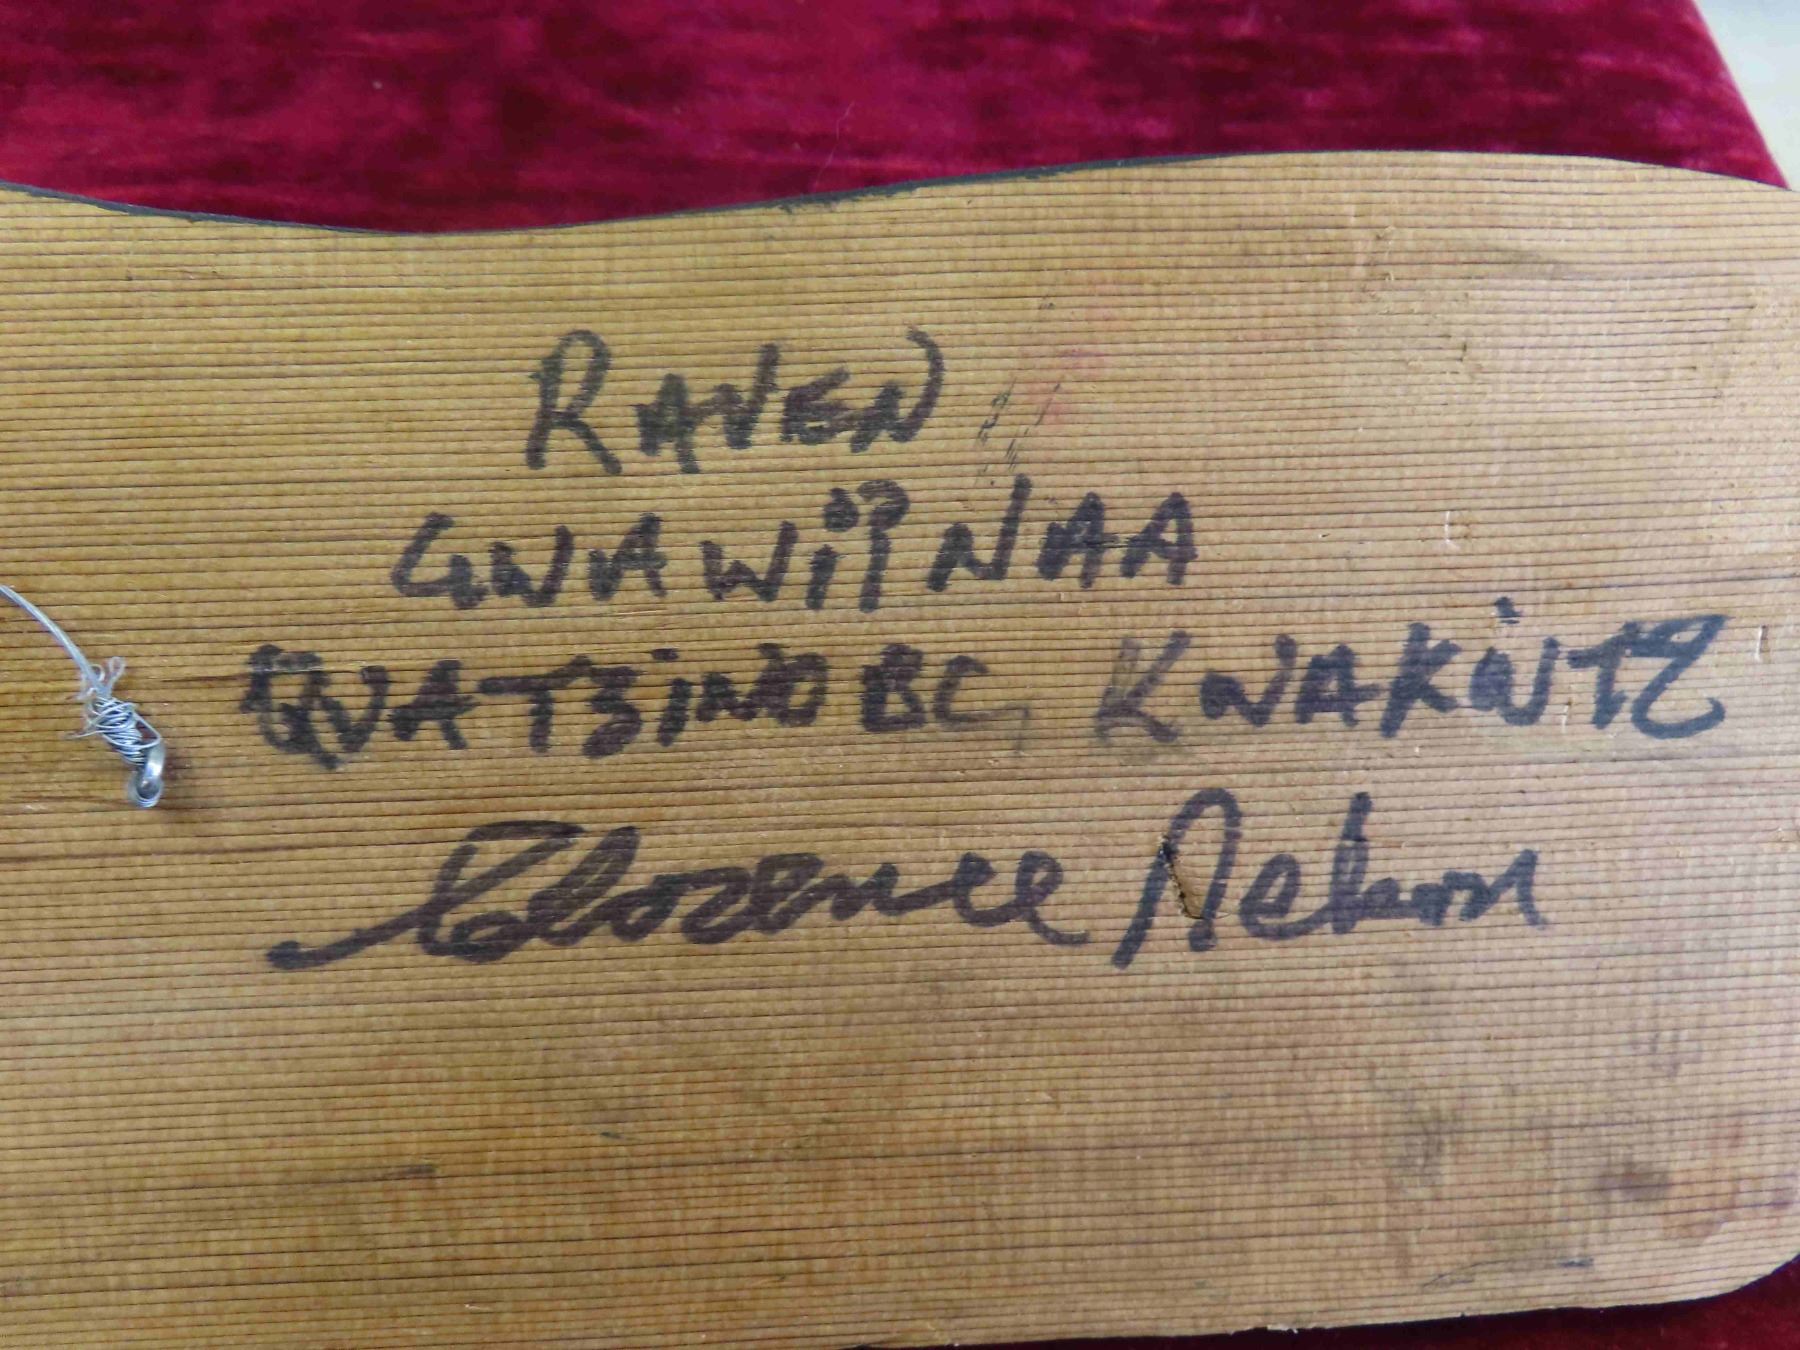 RAVEN
GWAWiPNAA
QUATSiNO BC, KWAKiUTL
Florence Nelson